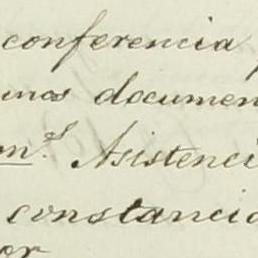 conferencia
unos documen
m.s Asistenci
constancia
or